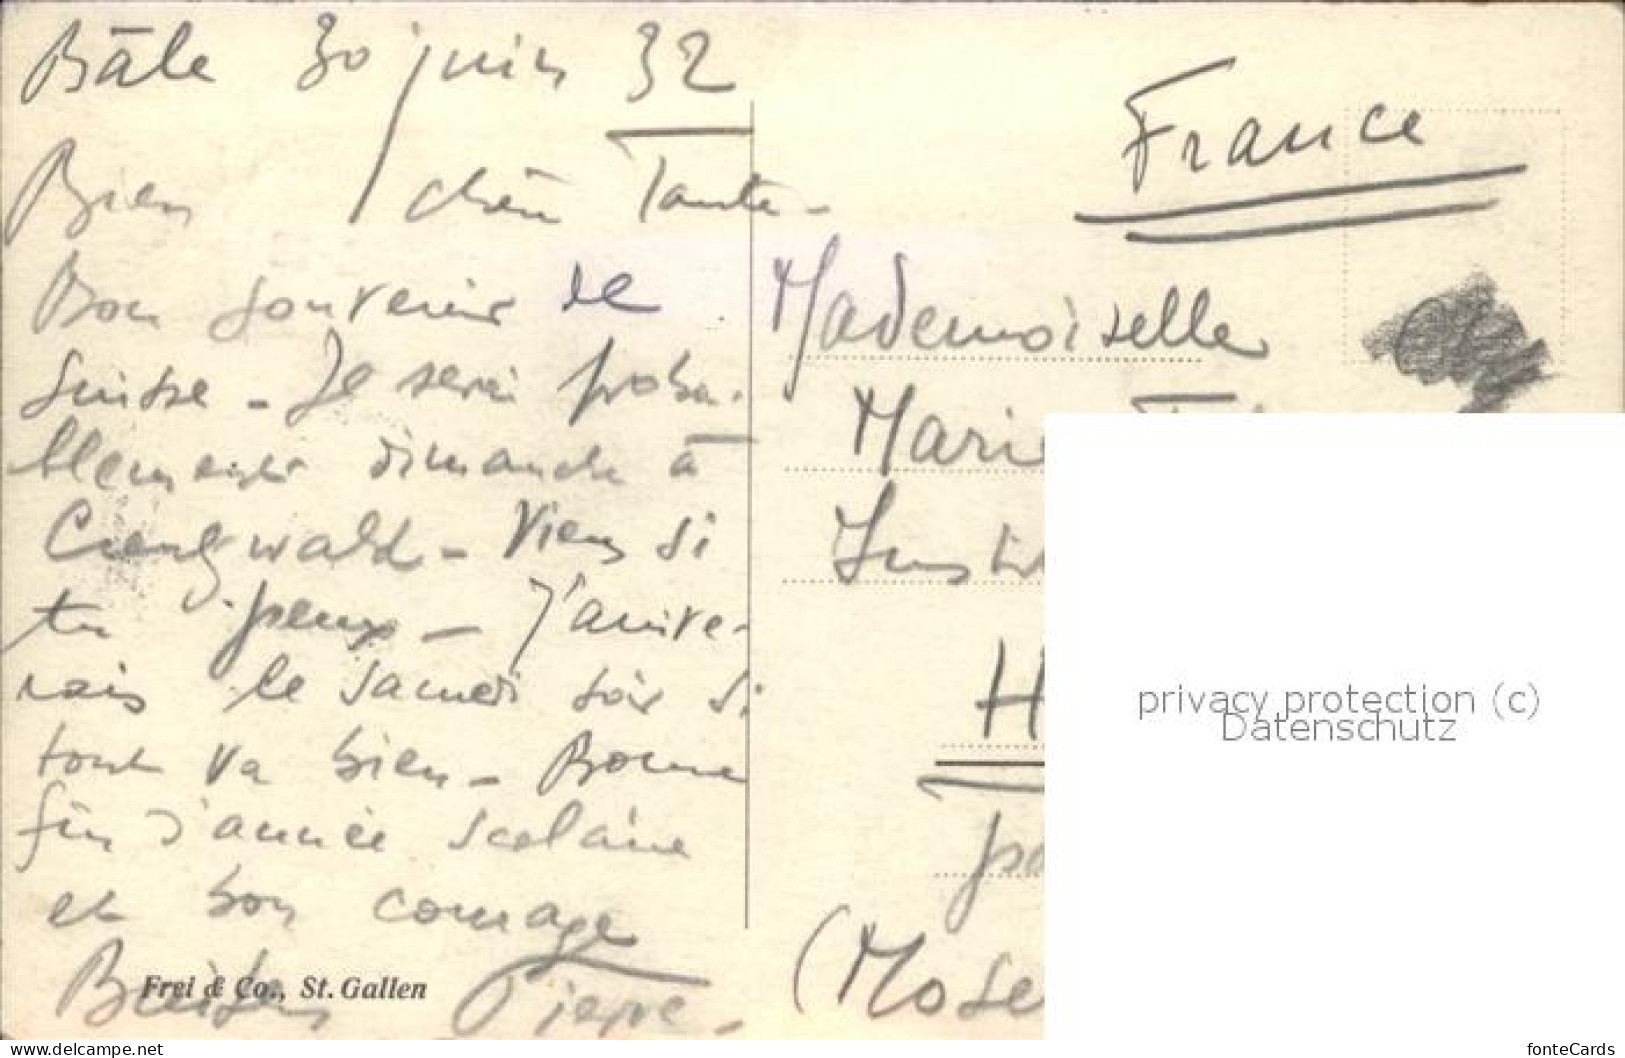 Bâle 30 juin 32
Bien chère Tante -
Bon souvenir de
Suisse - Je serai proba-
blement dimanche à
Creutzwald - Viens si
tu peux - J'arrive-
rais le samedi soir si
tout va bien - Bonne
fin d'année scolaire
et bon courage
Baisers Pierre -
Frei & Co., St. Gallen
France
Mademoiselle
Marie
H
(Mose
privacy protection (c)
Datenschutz
www.delcampe.net
fonteCards